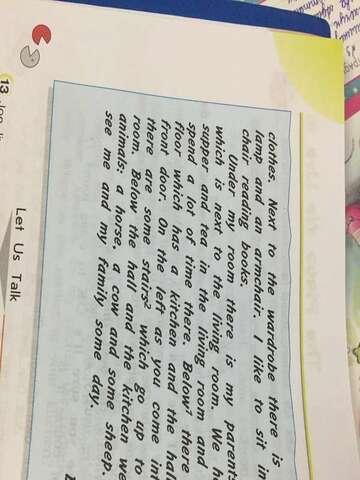 clothes. Next to the wardrobe there is
lamp and an armchair. I like to sit in
chair reading books.
Under my room there is my parents
which is next to the living room. We ha
supper and tea in the living room and
spend a lot of time there. Below¹ there
floor which has a kitchen and the hall
front door. On the left as you come int
there are some stairs² which go up to
room. Below the hall and the kitchen we
animals: a horse, a cow and some sheep.
see me and my family some day.
Let Us Talk
13